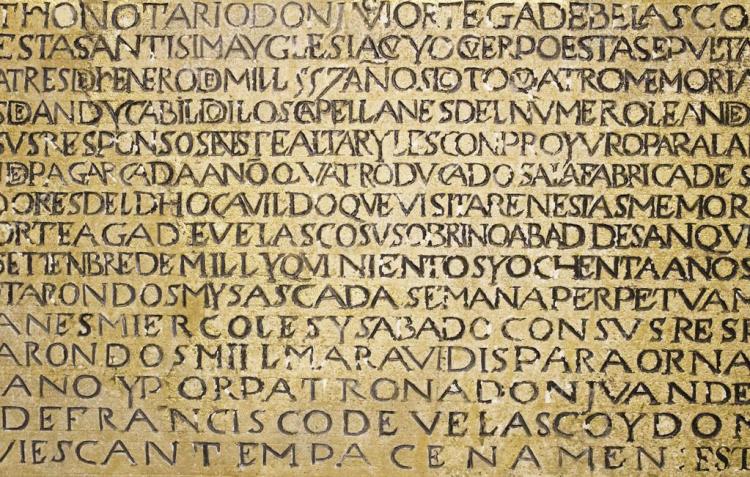 THONOTARIODONJVIORTEGADEBELASCO
ESTASANTISIMAYGLESIACVYOCVERPOESTASEPVLTA
ATRESDENERODMILL557AÑOSDOTOQVATROMEMORIA
SDANDYCABILDDILOSCAPELLANESDELNVMEROLEANDE
SVSRESPONSOSENSTEALTARYLESCONPROYVROPARALA
DPAGARCADAAÑOQVATRODVCADOSALAFABRICADES
DORESDELDHOCAVILDOQVEVISITARENESTASMEMOR
ORTEAGADEVELASCOSVSOBRINOABADDESANQVI
SETIENBREDEMILLYQVINIENTOSYOCHENTAAÑOS
TARONDOSMYSASCADASEMANAPERPETVAM
ANESMIERCOLESYSABADOCONSVSRESP
ARONDOSMIILMARAVIDISPARAORNA
ANOYPORPATRONADONJVANDE
DEFRANCISCODEVELASCOYDON
VIESCANTEMPACENAMEN:EST